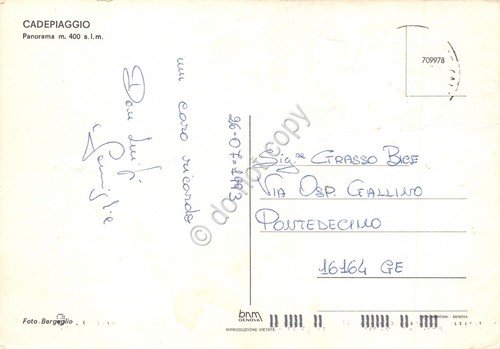 CADEPIAGGIO
Panorama m. 400 s.l.m.
709978
26-07-1993
un caro ricordo
Don Luigi
e Famiglia
Sig.ra GRASSO BICE
VIA OSP. GALLINO
PONTEDECIMO
16164 GE
Foto Bergaglio
bnm
GENOVA
RIPRODUZIONE VIETATA
GENOVA
© domuscopy